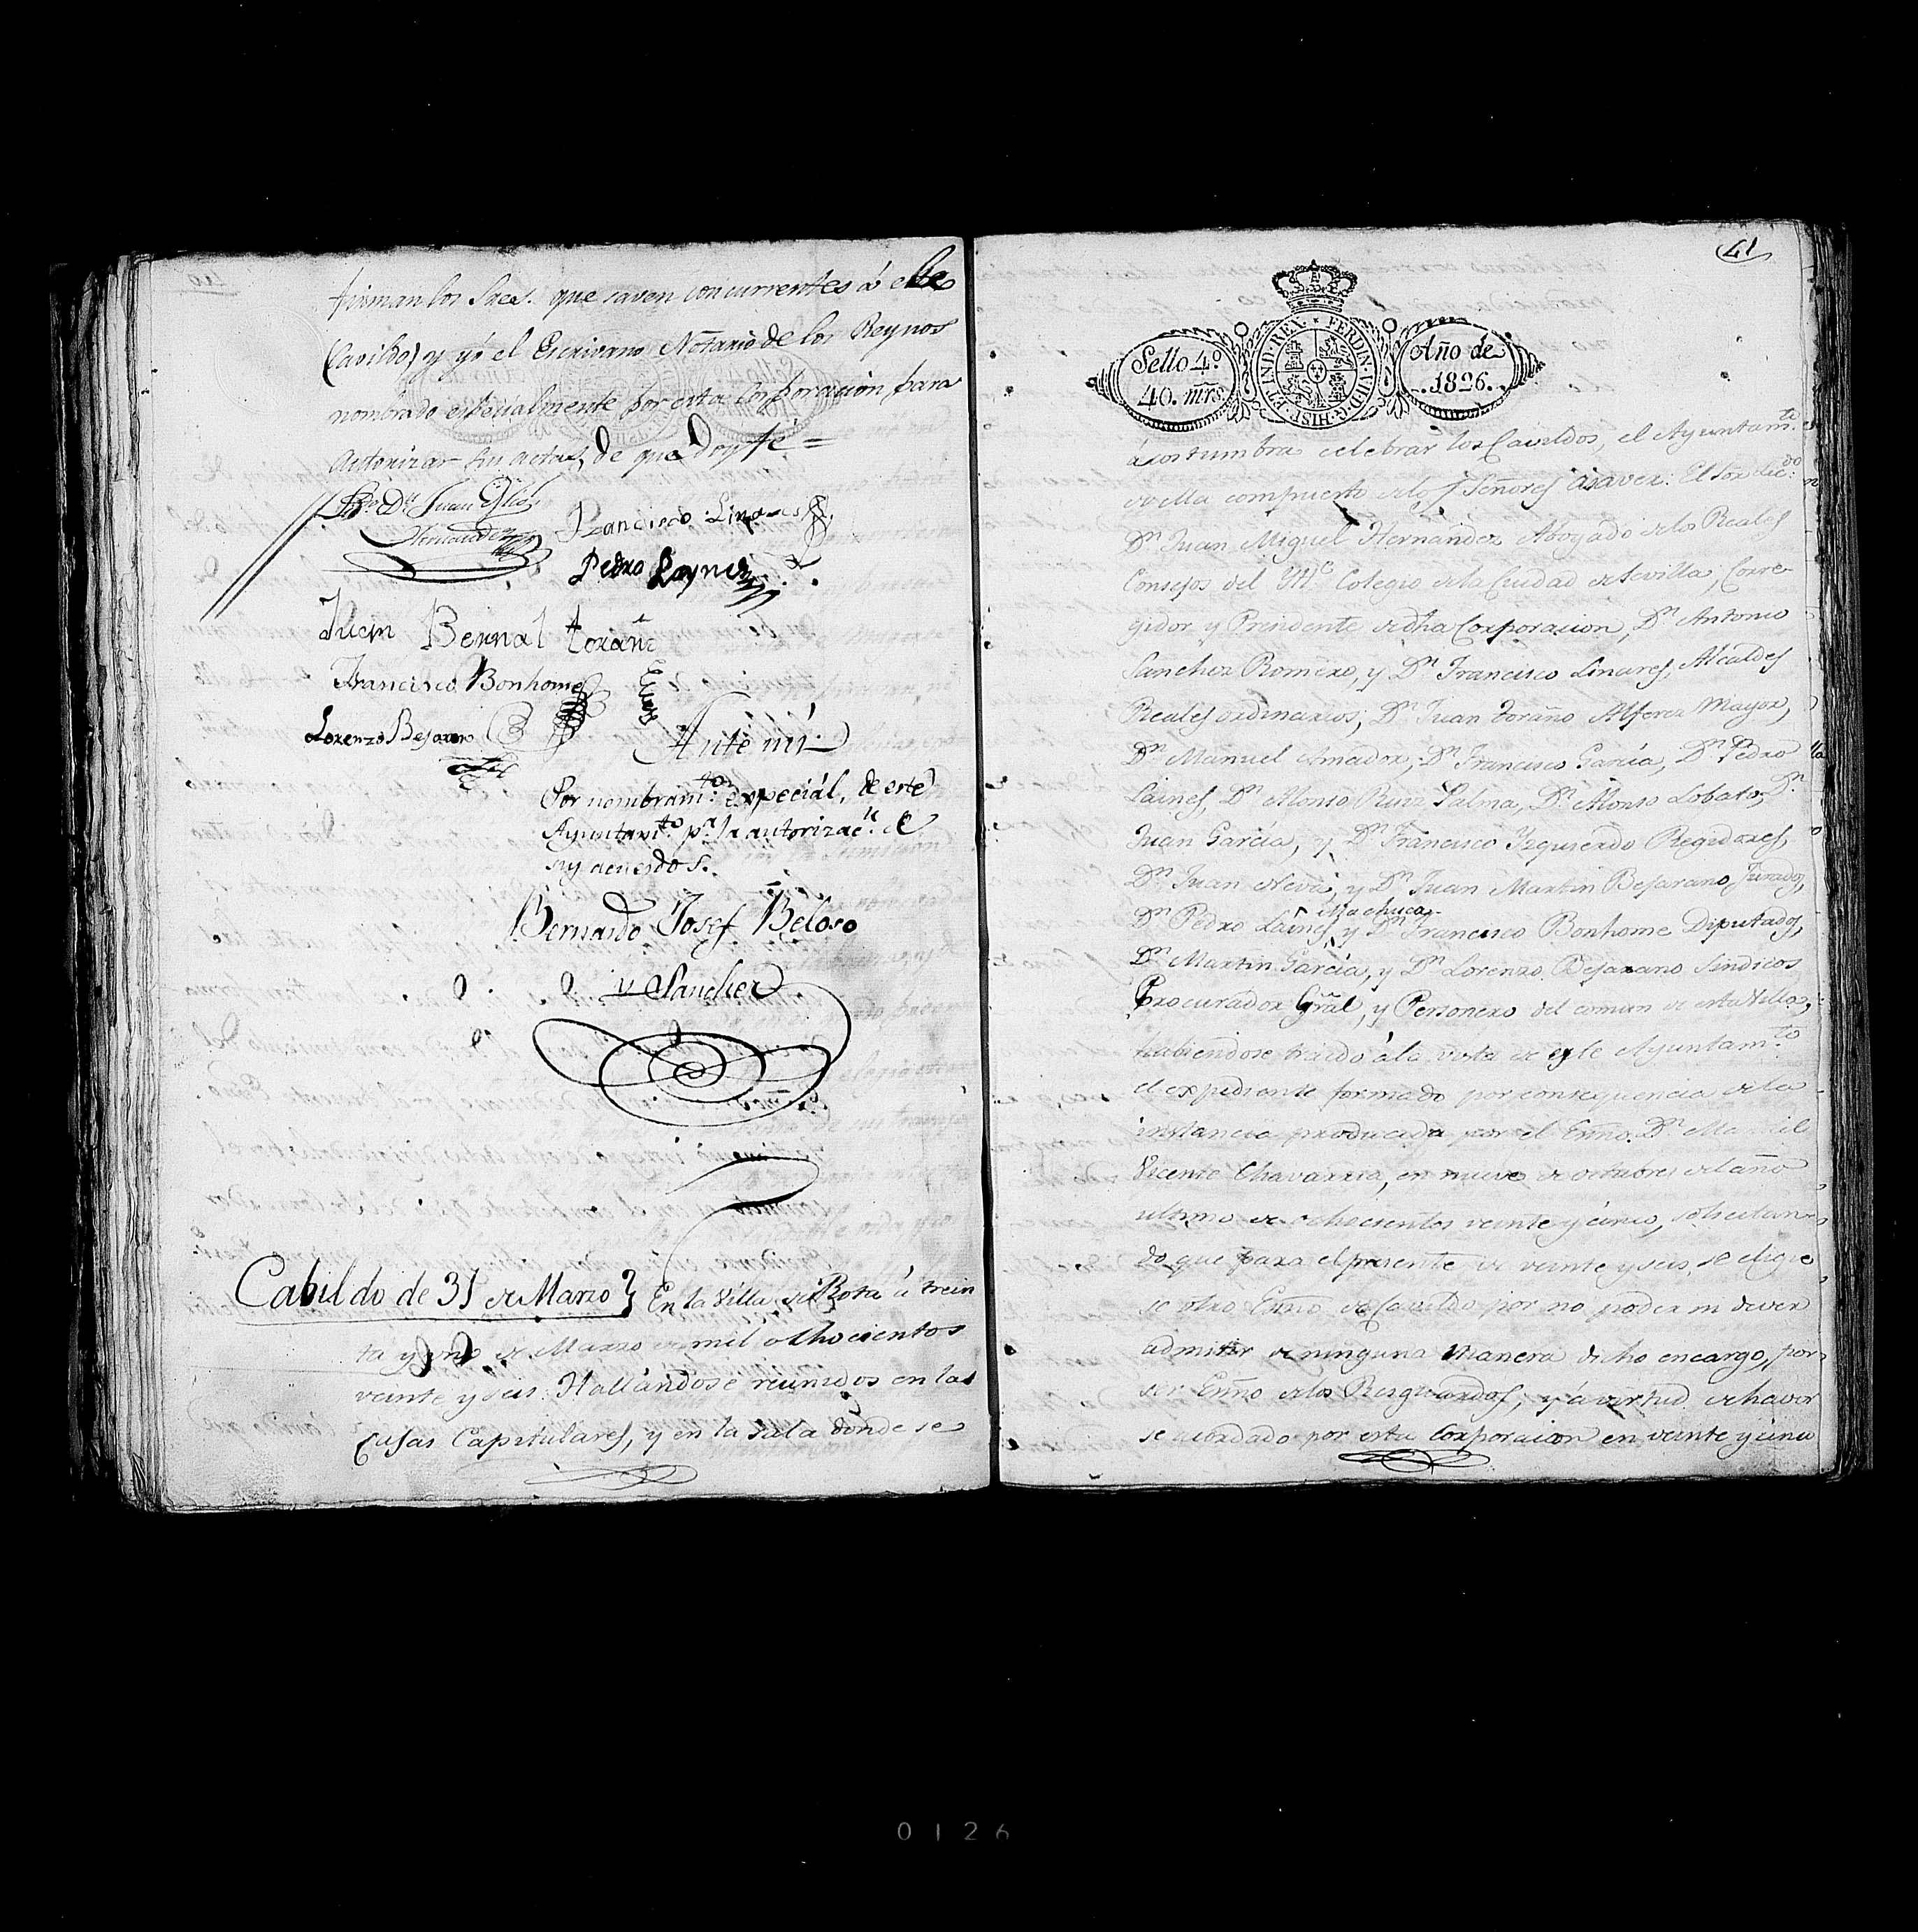 firman los Sres. que saven concurrentes á este
Cavildo, y yó el Escrivano Notario de los Reynos
nombrado especialmente por esta corporacion para
autorizar sus actas, de que Doy fé =
Ldo. Dn. Juan Mig.l
Hernandez
Francisco Linares
Pedro Laynez
Juan Bernal toraño
Francisco Bonhome
Lorenzo Bejarano
Ante mi
Por nombram.to especiál, de este
Ayuntam.to p.a la autorizac.n de
sus acuerdos.
Bernardo Josef Beloso
y Sanchez
Cabildo de 31 de Marzo} En la Villa de Rota á trein
ta y uno de Marzo de mil ochocientos
veinte y seis: Hallandose reunidos en las
casas Capitulares, y en la sala donde se
41
Sello 4º
40. mrs.
HISP. ET IND. REX. FERDIN. VII. D. G.
Año de
1826.
acostumbra celebrar los Cavildos, el Ayuntam.to
de ella compuesto de los Señores á saver: El Sor. Lic.do
Dn. Juan Miguel Hernandez Abogado de los Reales
Consejos del Yll.e Colegio de la Ciudad de Sevilla, Corre-
gidor y Presidente de dha Corporacion, Dn. Antonio
Sanchez Romero, y Dn. Francisco Linares, Alcaldes
Reales ordinarios; Dn. Juan Toraño Alferez Mayor,
Dn. Manuel Amador, Dn. Francisco García, Dn. Pedro
Laines, Dn. Alonso Ruiz Palma, Dn. Alonso Lobato, Dn.
Juan García, y Dn. Francisco Yzquierdo Regidores,
Dn. Juan Neva, y Dn. Juan Martin Bejarano Jurados,
Machuca
Dn. Pedro Laines y Dn. Francisco Bonhome Diputados,
Dn. Martin García, y Dn. Lorenzo Bejarano Sindicos
Procurador Gral, y Personero del comun de esta Villa;
Habiendose traido á la vista de este Ayuntam.to
el expediente formado por consequencia de la
instancia producida por el Esno. Dn. Manuel
Vicente Chavarria, en nueve de octubre del año
ultimo de ochocientos veinte y cinco, solicitan-
do que para el presente de veinte y seis, se elige
se otro Esno de Cavildo por no poder ni dever
admitir de ninguna manera dicho encargo, por
ser Esno de los Resguardos, y á virtud de haver
se acordado por esta Corporacion en veinte y cinco
0126